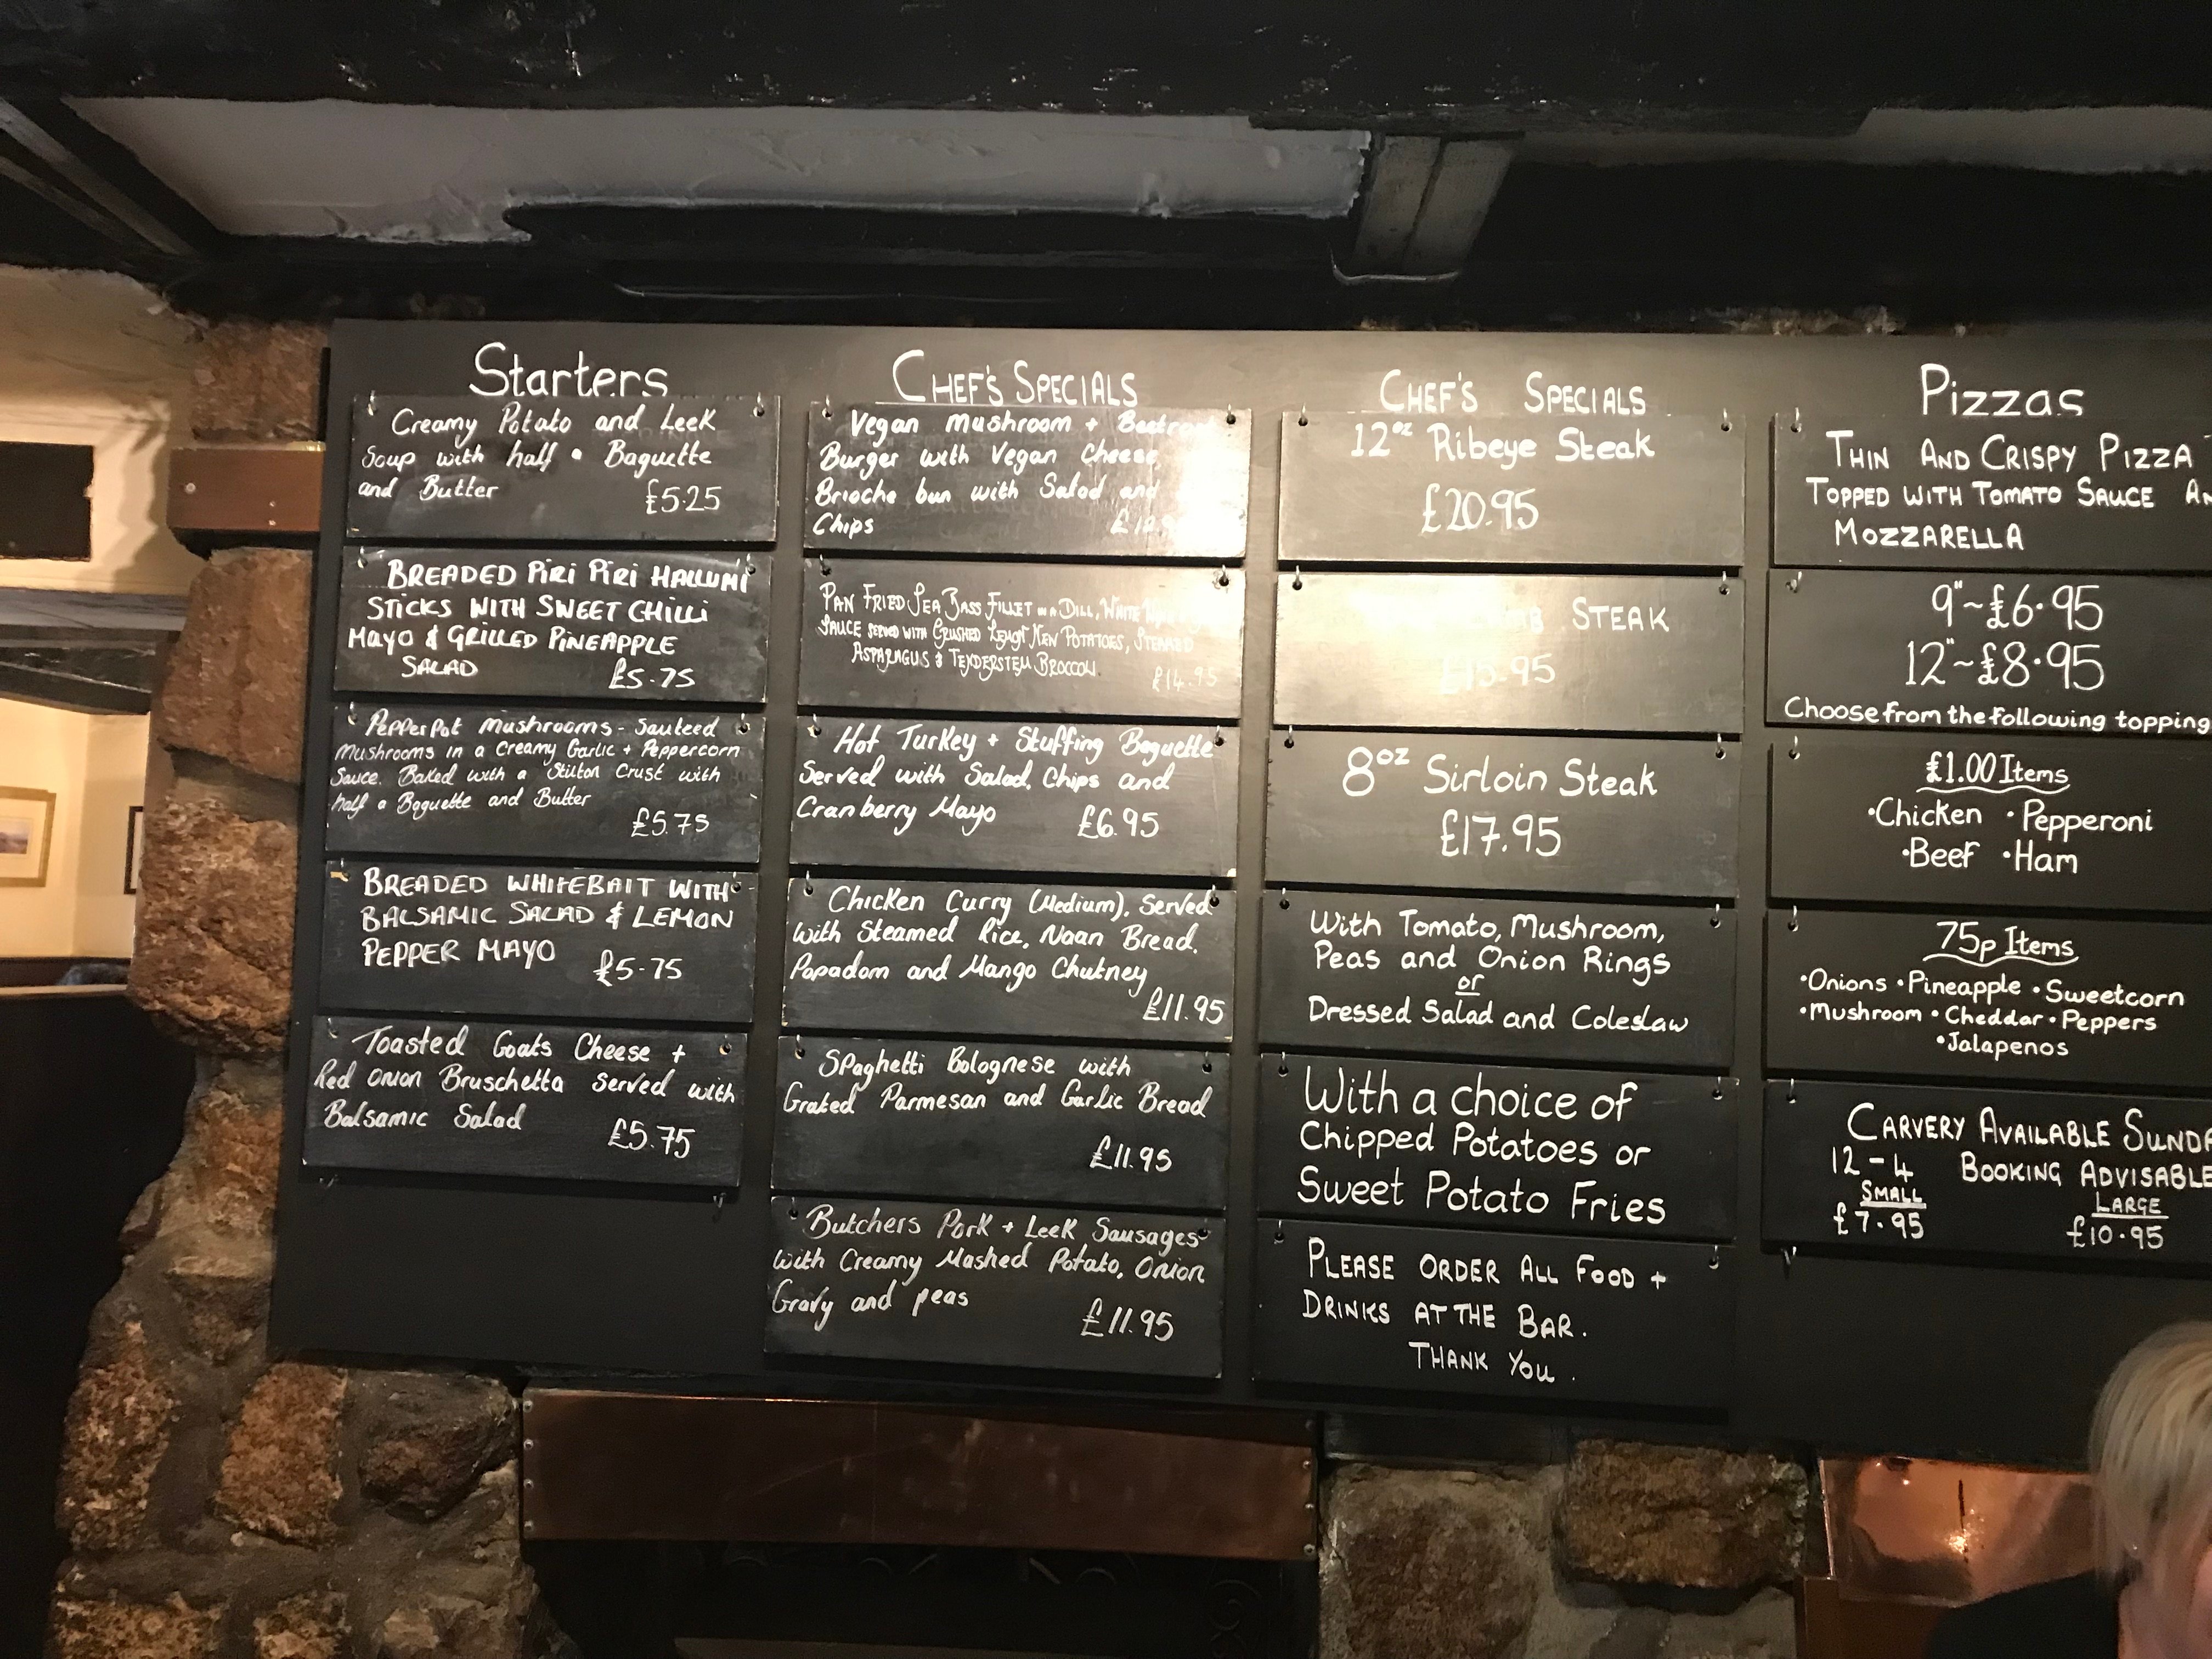 Starters
Creamy Potato and Leek
Soup with half a Baguette
and Butter £5.25
BREADED PIRI PIRI HALLUMI
STICKS WITH SWEET CHILLI
MAYO & GRILLED PINEAPPLE
SALAD £5.75
PepperPot Mushrooms - Sauteed
Mushrooms in a Creamy Garlic + Peppercorn
Sauce. Baked with a Stilton Crust with
half a Baguette and Butter
£5.75
BREADED WHITEBAIT WITH
BALSAMIC SALAD & LEMON
PEPPER MAYO £5.75
Toasted Goats Cheese +
Red Onion Bruschetta served with
Balsamic Salad £5.75
CHEF'S SPECIALS
Vegan Mushroom +
Burger with Vegan Cheese
Brioche bun with Salad and
Chips
PAN FRIED SEA BASS FILLET IN A DILL, WHITE
SAUCE SERVED WITH CRUSHED LEMON NEW POTATOES, STEAMED
ASPARAGUS & TENDERSTEM BROCCOLI. £14.95
Hot Turkey + Stuffing Baguette
Served with Salad, Chips and
Cranberry Mayo £6.95
Chicken Curry (Medium), Served
with Steamed Rice, Naan Bread,
Papadom and Mango Chutney
£11.95
Spaghetti Bolognese with
Grated Parmesan and Garlic Bread
£11.95
Butchers Pork + Leek Sausages
with Creamy Mashed Potato, Onion
Gravy and peas £11.95
CHEF'S SPECIALS
12oz Ribeye Steak
£20.95
STEAK
8oz Sirloin Steak
£17.95
With Tomato, Mushroom,
Peas and Onion Rings
or
Dressed Salad and Coleslaw
With a choice of
Chipped Potatoes or
Sweet Potato Fries
PLEASE ORDER ALL FOOD +
DRINKS AT THE BAR.
THANK YOU.
Pizzas
THIN AND CRISPY PIZZA
TOPPED WITH TOMATO SAUCE
MOZZARELLA
9"~£6.95
12"~£8.95
Choose from the following topping
£1.00 Items
•Chicken •Pepperoni
•Beef •Ham
75p Items
•Onions •Pineapple •Sweetcorn
•Mushroom •Cheddar •Peppers
•Jalapenos
CARVERY AVAILABLE
12-4 BOOKING ADVISABLE
SMALL LARGE
£7.95 £10.95